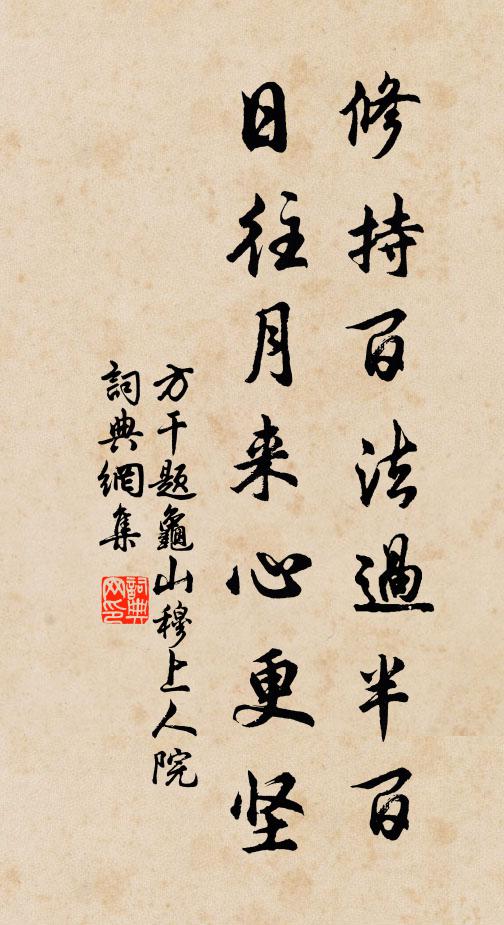 修持百法過半百
日往月来心更坚
方干题龜山穆上人院
詞典網集
詞典
网印